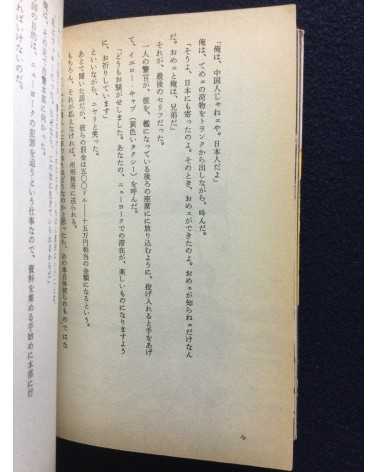 「俺は、中国人じゃねェや。日本人だよ」
俺は、てめェの荷物をトランクから出しながら、呼んだ。
「そうよ、日本にも寄ったのよ。そのとき、おめェができたのよ。おめェが知らねェだけなん
だ。おめェと俺は、兄弟だ」
それが、最後のセリフだった。
一人の警官が、彼を、檻になっている後ろの座席にに放り込むように、投げ入れると手をあげ
て、イエロー・キャブ（黄色いタクシー）を呼んだ。
「どうもお騒がせしました。あなたの、ニューヨークでの滞在が、楽しいものになりますよう
に、お祈りしています」
といいながら、ニヤリと笑った。
あとで聞いた話だが、彼らの罰金は五〇〇ドル――十五万円相当の金額になるという。
もちろん、それが払えなければ、刑務所に送られる。
ニューヨークの犯罪を追うという仕事なので、資料を集める手始めに本部に行
ければいけないのだ。